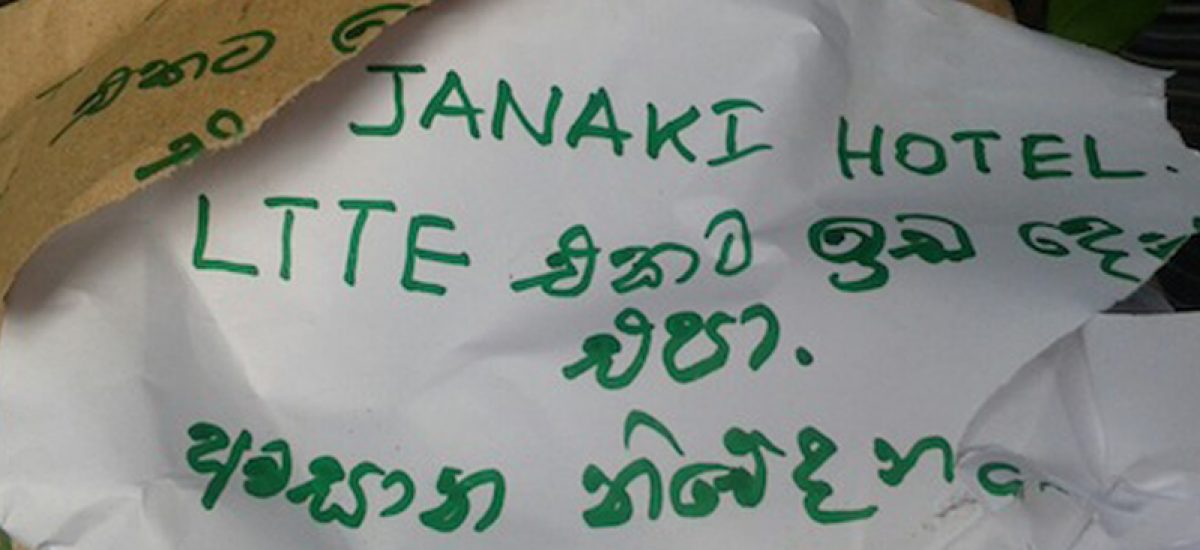 එකට
JANAKI HOTEL.
LTTE එකට ඉඩ
එපා.
අවසාන නිවේදනය